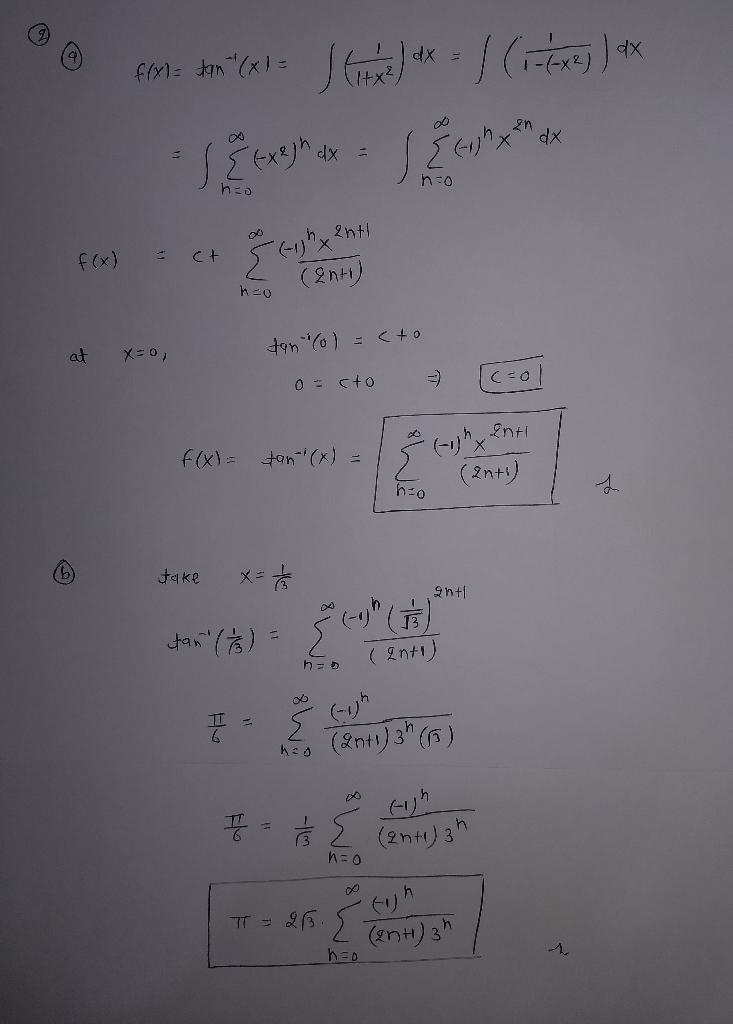 ② ⓐ f(x) = tan⁻¹(x) = ∫ (1/(1+x²)) dx = ∫ (1/(1-(-x²))) dx
= ∫ ∑_{n=0}^{∞} (-x²)ⁿ dx = ∫ ∑_{n=0}^{∞} (-1)ⁿ x²ⁿ dx
f(x) = c + ∑_{n=0}^{∞} (-1)ⁿ x²ⁿ⁺¹/(2n+1)
at x=0, tan⁻¹(0) = c+0
0 = c+0 ⇒ c=0
f(x) = tan⁻¹(x) = ∑_{n=0}^{∞} (-1)ⁿ x²ⁿ⁺¹/(2n+1)
ⓑ take x = 1/√3
tan⁻¹(1/√3) = ∑_{n=0}^{∞} (-1)ⁿ (1/√3)²ⁿ⁺¹/(2n+1)
π/6 = ∑_{n=0}^{∞} (-1)ⁿ/((2n+1) 3ⁿ (√3))
π/6 = 1/√3 ∑_{n=0}^{∞} (-1)ⁿ/((2n+1) 3ⁿ)
π = 2√3 · ∑_{n=0}^{∞} (-1)ⁿ/((2n+1) 3ⁿ)